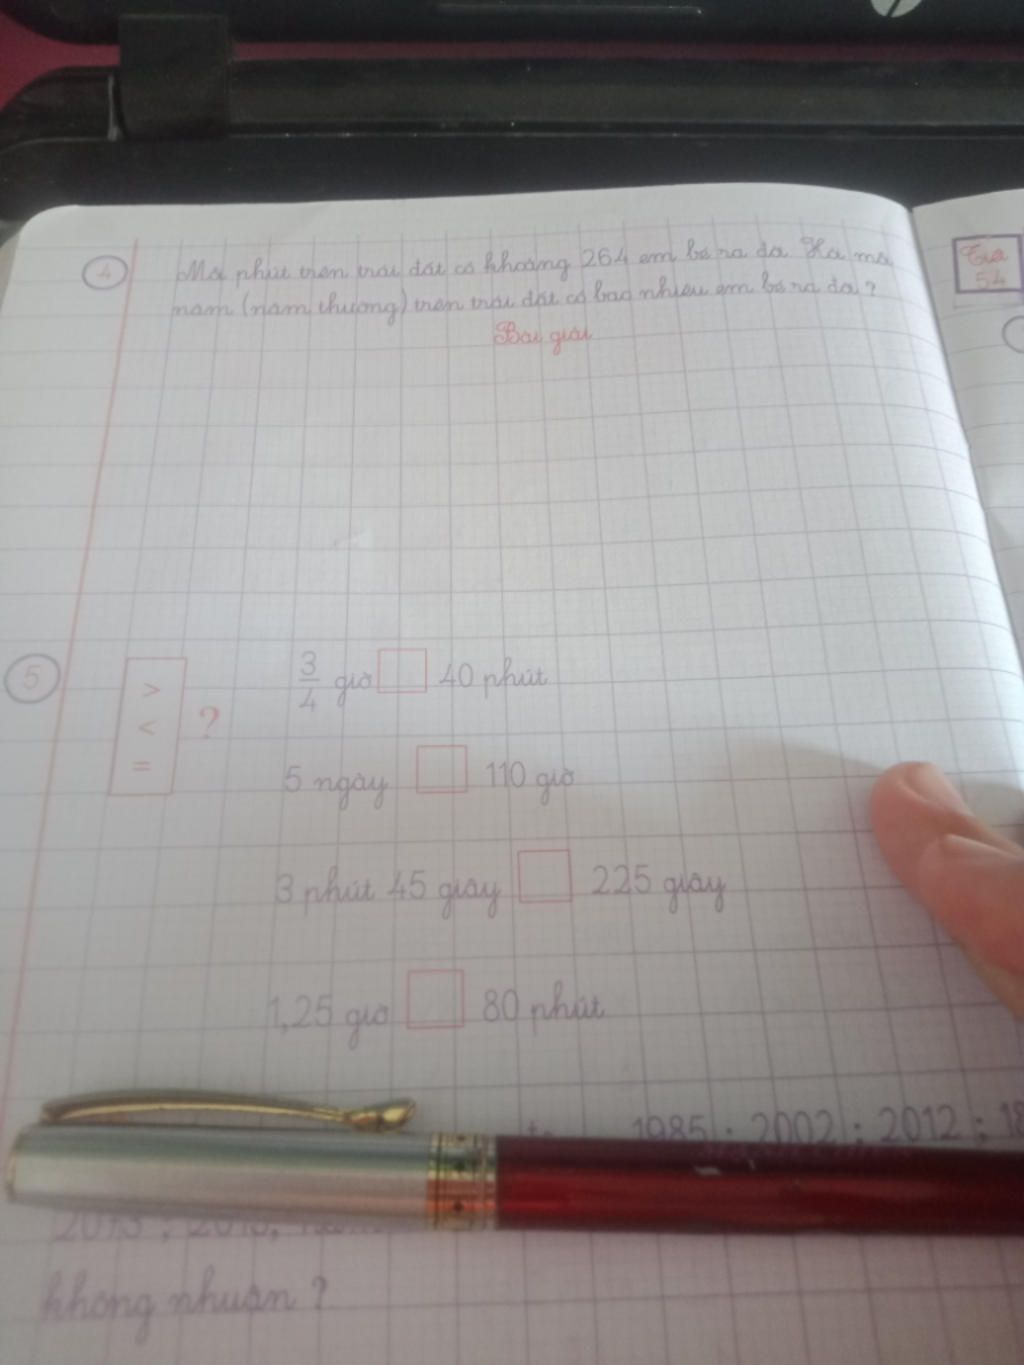 4
Mỗi phút trên trái đất có khoảng 264 em bé ra đời. Hỏi mỗi
năm (năm thường) trên trái đất có bao nhiêu em bé ra đời?
Bài giải
5
>
<
=
?
3/4 giờ 40 phút
5 ngày 110 giờ
3 phút 45 giây 225 giây
1,25 giờ 80 phút
1985 ; 2002 ; 2012 ; 18
không nhuận ?
54